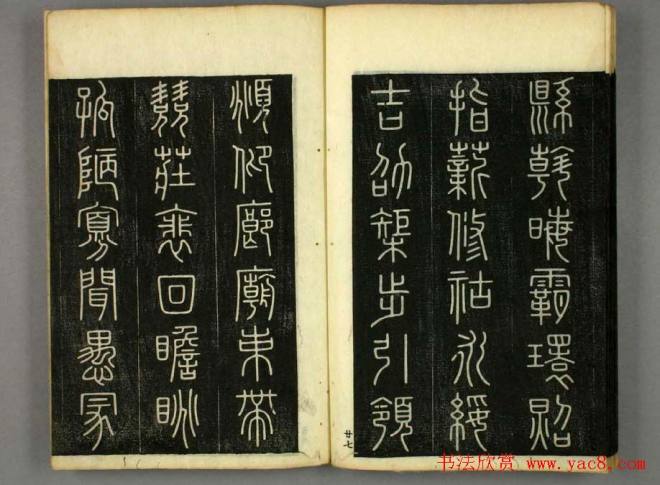 縣斡晦霸環照
指薪修祜永綏
吉劭榘步引領
廿七
頫仰廊廟束帶
莊裵回瞻眺
孤陋寡聞愚冡
书法欣赏 www.yac8.com